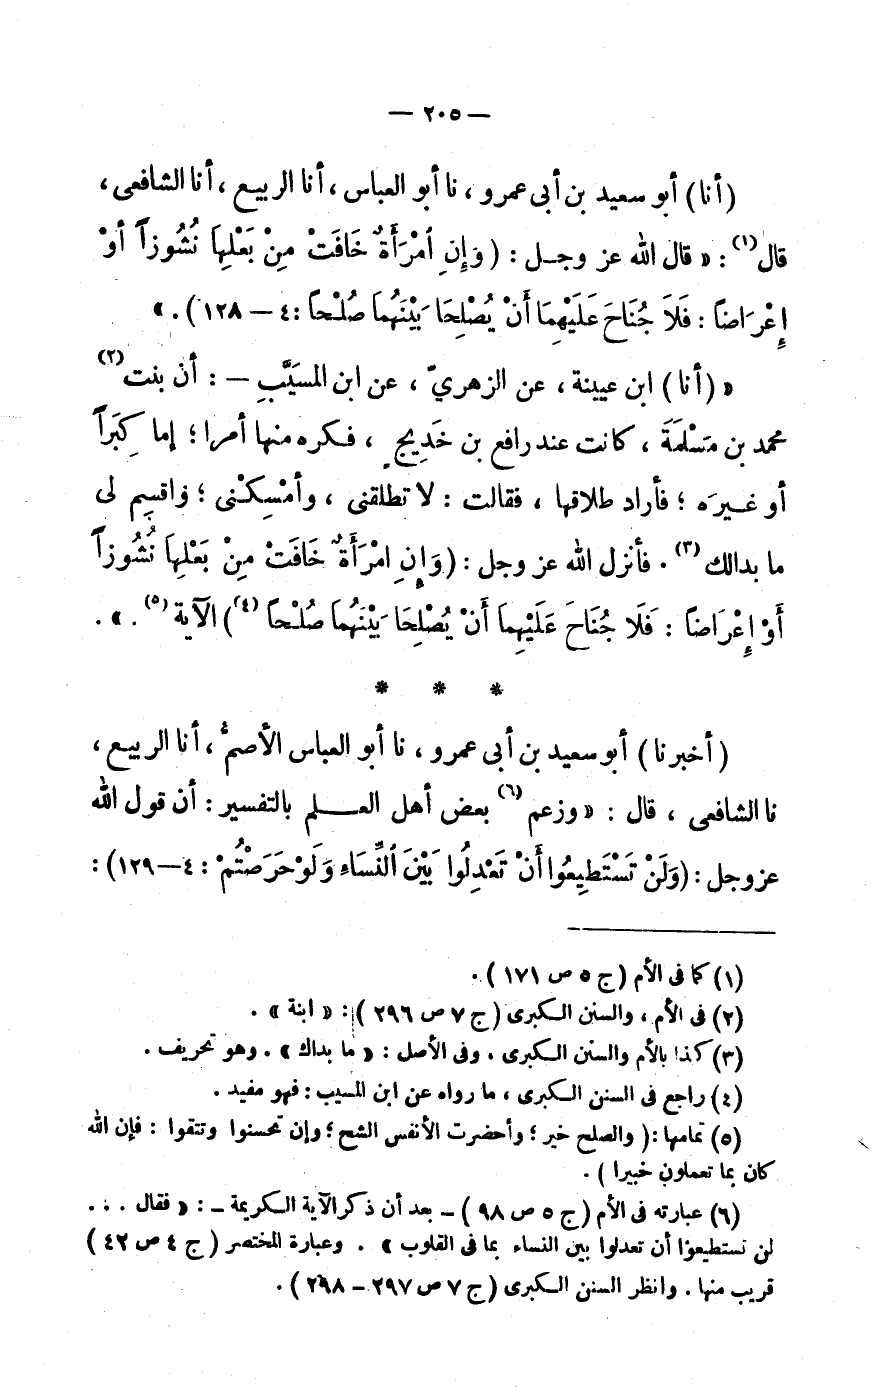 — ٢٠٥ —
(أنا) أبو سعيد بن أبى عمرو ، نا أبو العباس ، أنا الربيع ، أنا الشافعى ،
قال (١) : « قال الله عز وجل : ( وَإِنِ ٱمْرَأَةٌ خَافَتْ مِنْ بَعْلِهَا نُشُوزاً أَوْ
إِعْرَاضاً : فَلاَ جُنَاحَ عَلَيْهِمَا أَنْ يُصْلِحَا بَيْنَهُمَا صُلْحاً : ٤ — ١٢٨ ) . »
« (أنا) ابن عيينة ، عن الزهريّ ، عن ابن المسَيَّبِ — : أن بنت (٢)
محمد بن مَسْلمَةَ ، كانت عند رافع بن خَدِيجٍ ، فكره منها أمرا ؛ إما كِبَراً
أو غيرَه ؛ فأراد طلاقها ، فقالت : لا تطلقنى ، وأمْسِكْنى ؛ واقسِم لى
ما بدالك (٣) . فأنزل الله عز وجل : ( وَإِنِ امْرَأَةٌ خَافَتْ مِنْ بَعْلِهَا نُشُوزاً
أَوْ إِعْرَاضاً : فَلَا جُنَاحَ عَلَيْهِما أَنْ يُصْلِحَا بَيْنَهُمَا صُلْحاً (٤) ) الآية (٥) . » .
* * *
( أخبرنا ) أبو سعيد بن أبى عمرو ، نا أبو العباس الأصمُّ ، أنا الربيع ،
نا الشافعى ، قال : « وزعم (٦) بعض أهل العلم بالتفسير : أن قول الله
عز وجل : ( وَلَنْ تَسْتَطِيعُوا أَنْ تَعْدِلُوا بَيْنَ ٱلنِّسَاءِ وَلَوْ حَرَصْتُمْ : ٤ — ١٢٩ ) :
(١) كما فى الأم ( ج ٥ ص ١٧١ ) .
(٢) فى الأم ، والسنن الكبرى ( ج ٧ ص ٢٩٦ ) : « ابنة » .
(٣) كذا بالأم والسنن الكبرى . وفى الأصل : « ما بداك » . وهو تحريف .
(٤) راجع فى السنن الكبرى ، ما رواه عن ابن المسيب : فهو مفيد .
(٥) تمامها : ( والصلح خير ؛ وأحضرت الأنفس الشح ؛ وإن تحسنوا وتتقوا : فإن الله
كان بما تعملون خبيرا ) .
(٦) عبارته فى الأم ( ج ٥ ص ٩٨ ) – بعد أن ذكر الآية الكريمة – : « فقال . . .
لن تستطيعوا أن تعدلوا بين النساء بما فى القلوب » . وعبارة المختصر ( ج ٤ ص ٤٢ )
قريب منها . وانظر السنن الكبرى ( ج ٧ ص ٢٩٧ – ٢٩٨ ) .